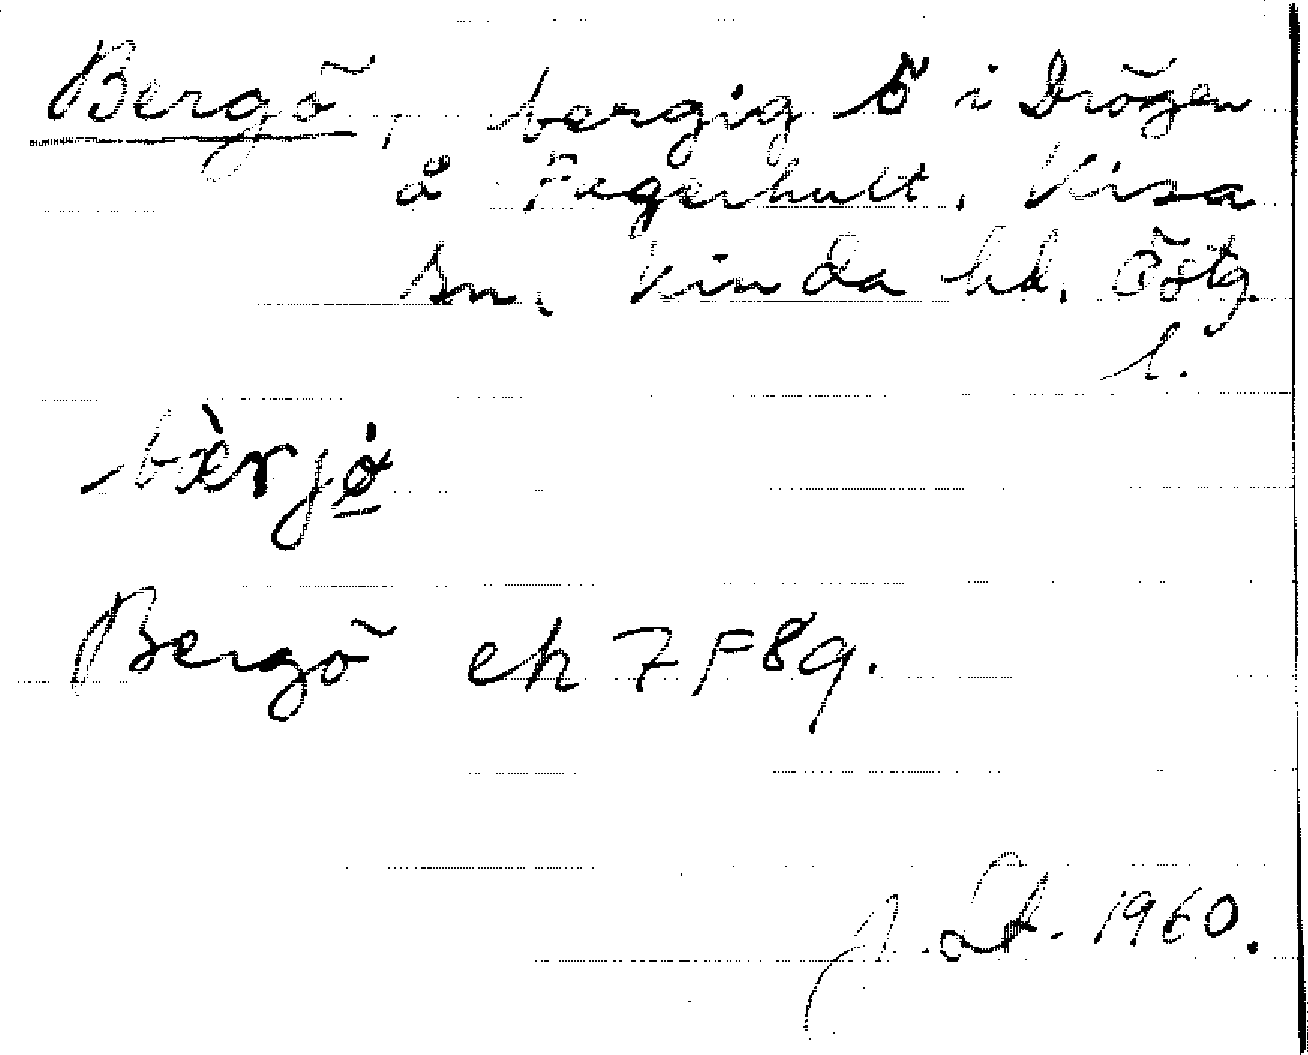 Bergö, bergig ö i Drögen
å Fagerhult. Kisa
sn. Kinda hd. Östg.
l.
bèrjö̀
Bergö ek 7F8g.
1960.